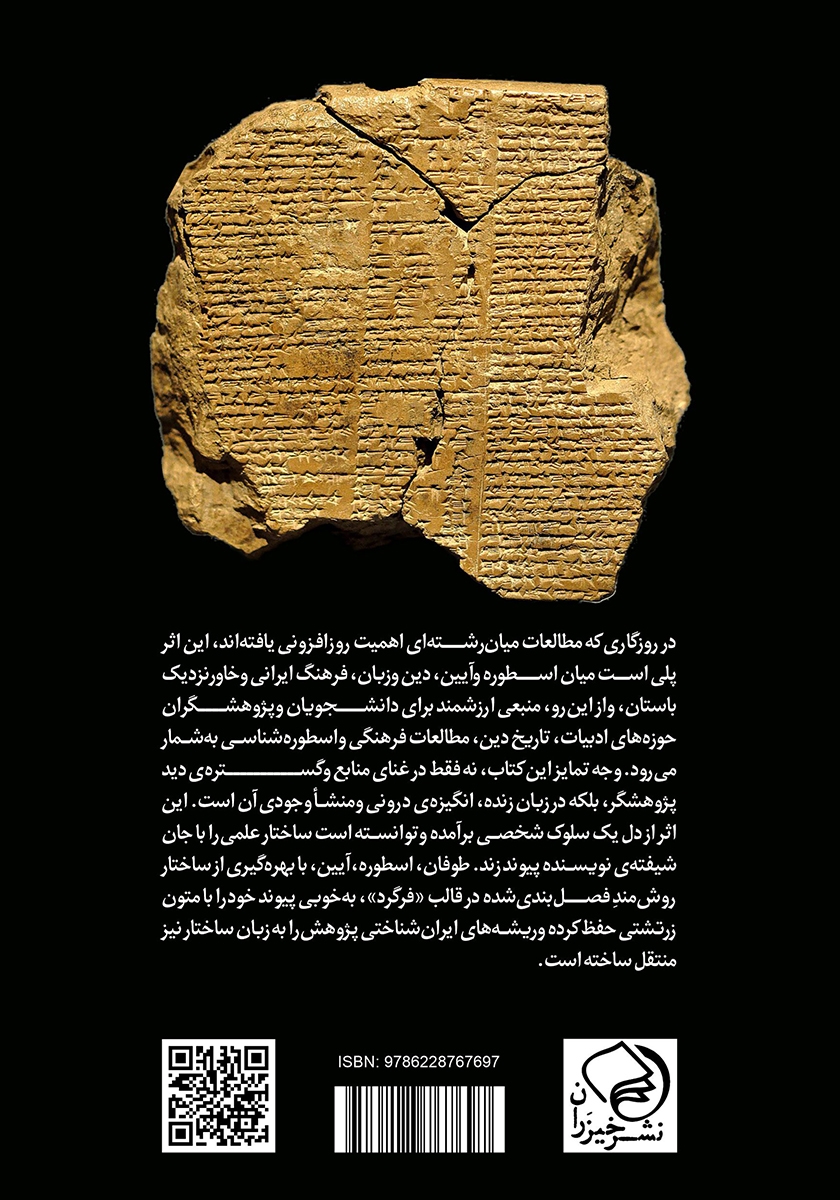 در روزگاری که مطالعات میان‌رشته‌ای اهمیت روزافزونی یافته‌اند، این اثر
پلی است میان اسطوره و آیین، دین و زبان، فرهنگ ایرانی و خاورنزدیک
باستان، و از این رو، منبعی ارزشمند برای دانشجویان و پژوهشگران
حوزه‌های ادبیات، تاریخ دین، مطالعات فرهنگی و اسطوره‌شناسی به‌شمار
می‌رود. وجه تمایز این کتاب، نه فقط در غنای منابع و گستره‌ی دید
پژوهشگر، بلکه در زبان زنده، انگیزه‌ی درونی و منشأ وجودی آن است. این
اثر از دل یک سلوک شخصی برآمده و توانسته است ساختار علمی را با جان
شیفته‌ی نویسنده پیوند زند. طوفان، اسطوره، آیین، با بهره‌گیری از ساختار
روش‌مندِ فصل‌بندی‌شده در قالب «فرگرد»، به‌خوبی پیوند خود را با متون
زرتشتی حفظ کرده و ریشه‌های ایران‌شناختی پژوهش را به زبان ساختار نیز
منتقل ساخته است.
ISBN: 9786228767697
نشر خیزران